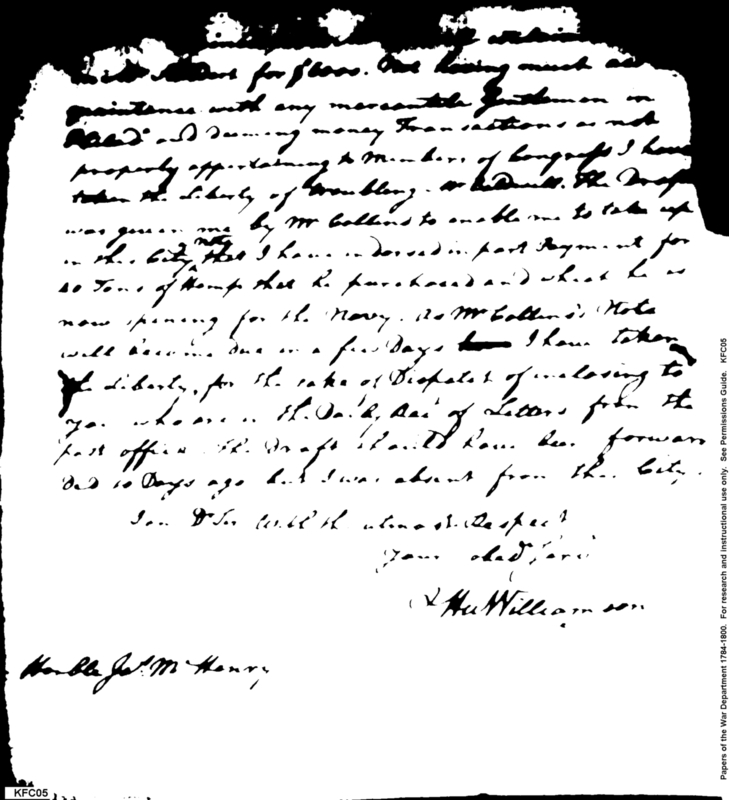 for $1000. Not having much ac
quaintance with any mercantile Gentlemen in
Philad.a and deeming money Transactions as not
properly appertaining to Members of Congress I have
taken the Liberty of troubling Mr Caldwell. The Draft
was given me by Mr Collins to enable me to take up
in this City a note that I have indorsed in part Payment for
40 Tons of Hemp that he purchased and which he is
now spinning for the Navy. As Mr Collins's Note
will become due in a few Days I have taken
the Liberty, for the sake of Dispatch of inclosing to
you who are in the Daily of Letters from the
post office. The Draft should have been forwar
ded 10 Days ago but I was absent from the City.
I am Dr Sir With the utmost Respect
Your obedt Servt
Hu Williamson
Honble Jas. McHenry
KFC05
Papers of the War Department 1784-1800. For research and instructional use only. See Permissions Guide. KFC05